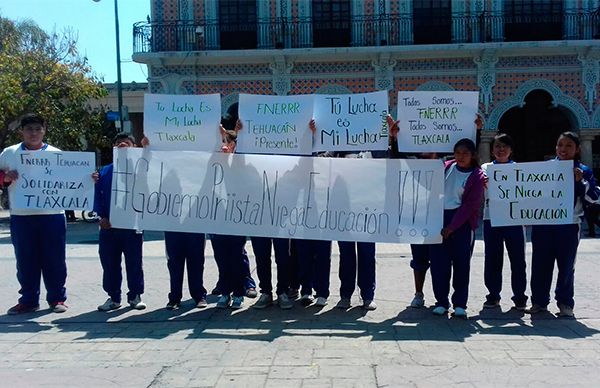 Tu Lucha Es
Mi Lucha
Tlaxcala
FNERRR
TEHUACÁN
¡Presente!
Tú Lucha
es
Mi Lucha
Todas Somos....
FNERRR
Todos Somos...
TLAXCALA
FNERRR TEHUACAN
Se
SOLIDARIZA
CON
TLAXCALA
#GobiernoPriistaNiegaEducación!!!
EN TLAXCALA
SE NIEGA LA
EDUCACIÓN